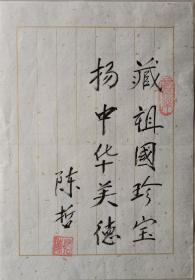 藏祖國珍宝
扬中华美德
陈哲